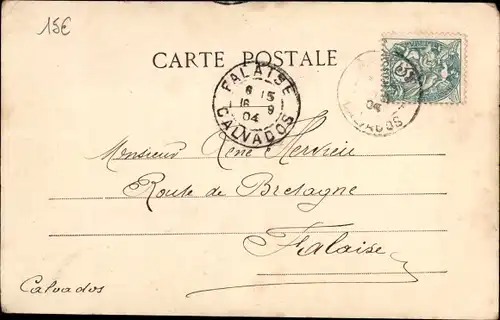 15€
CARTE POSTALE
FALAISE
6 15
16 9
04
CALVADOS
5
04
CALVADOS
Monsieur René Hervieu
Route de Bretagne
Falaise
Calvados